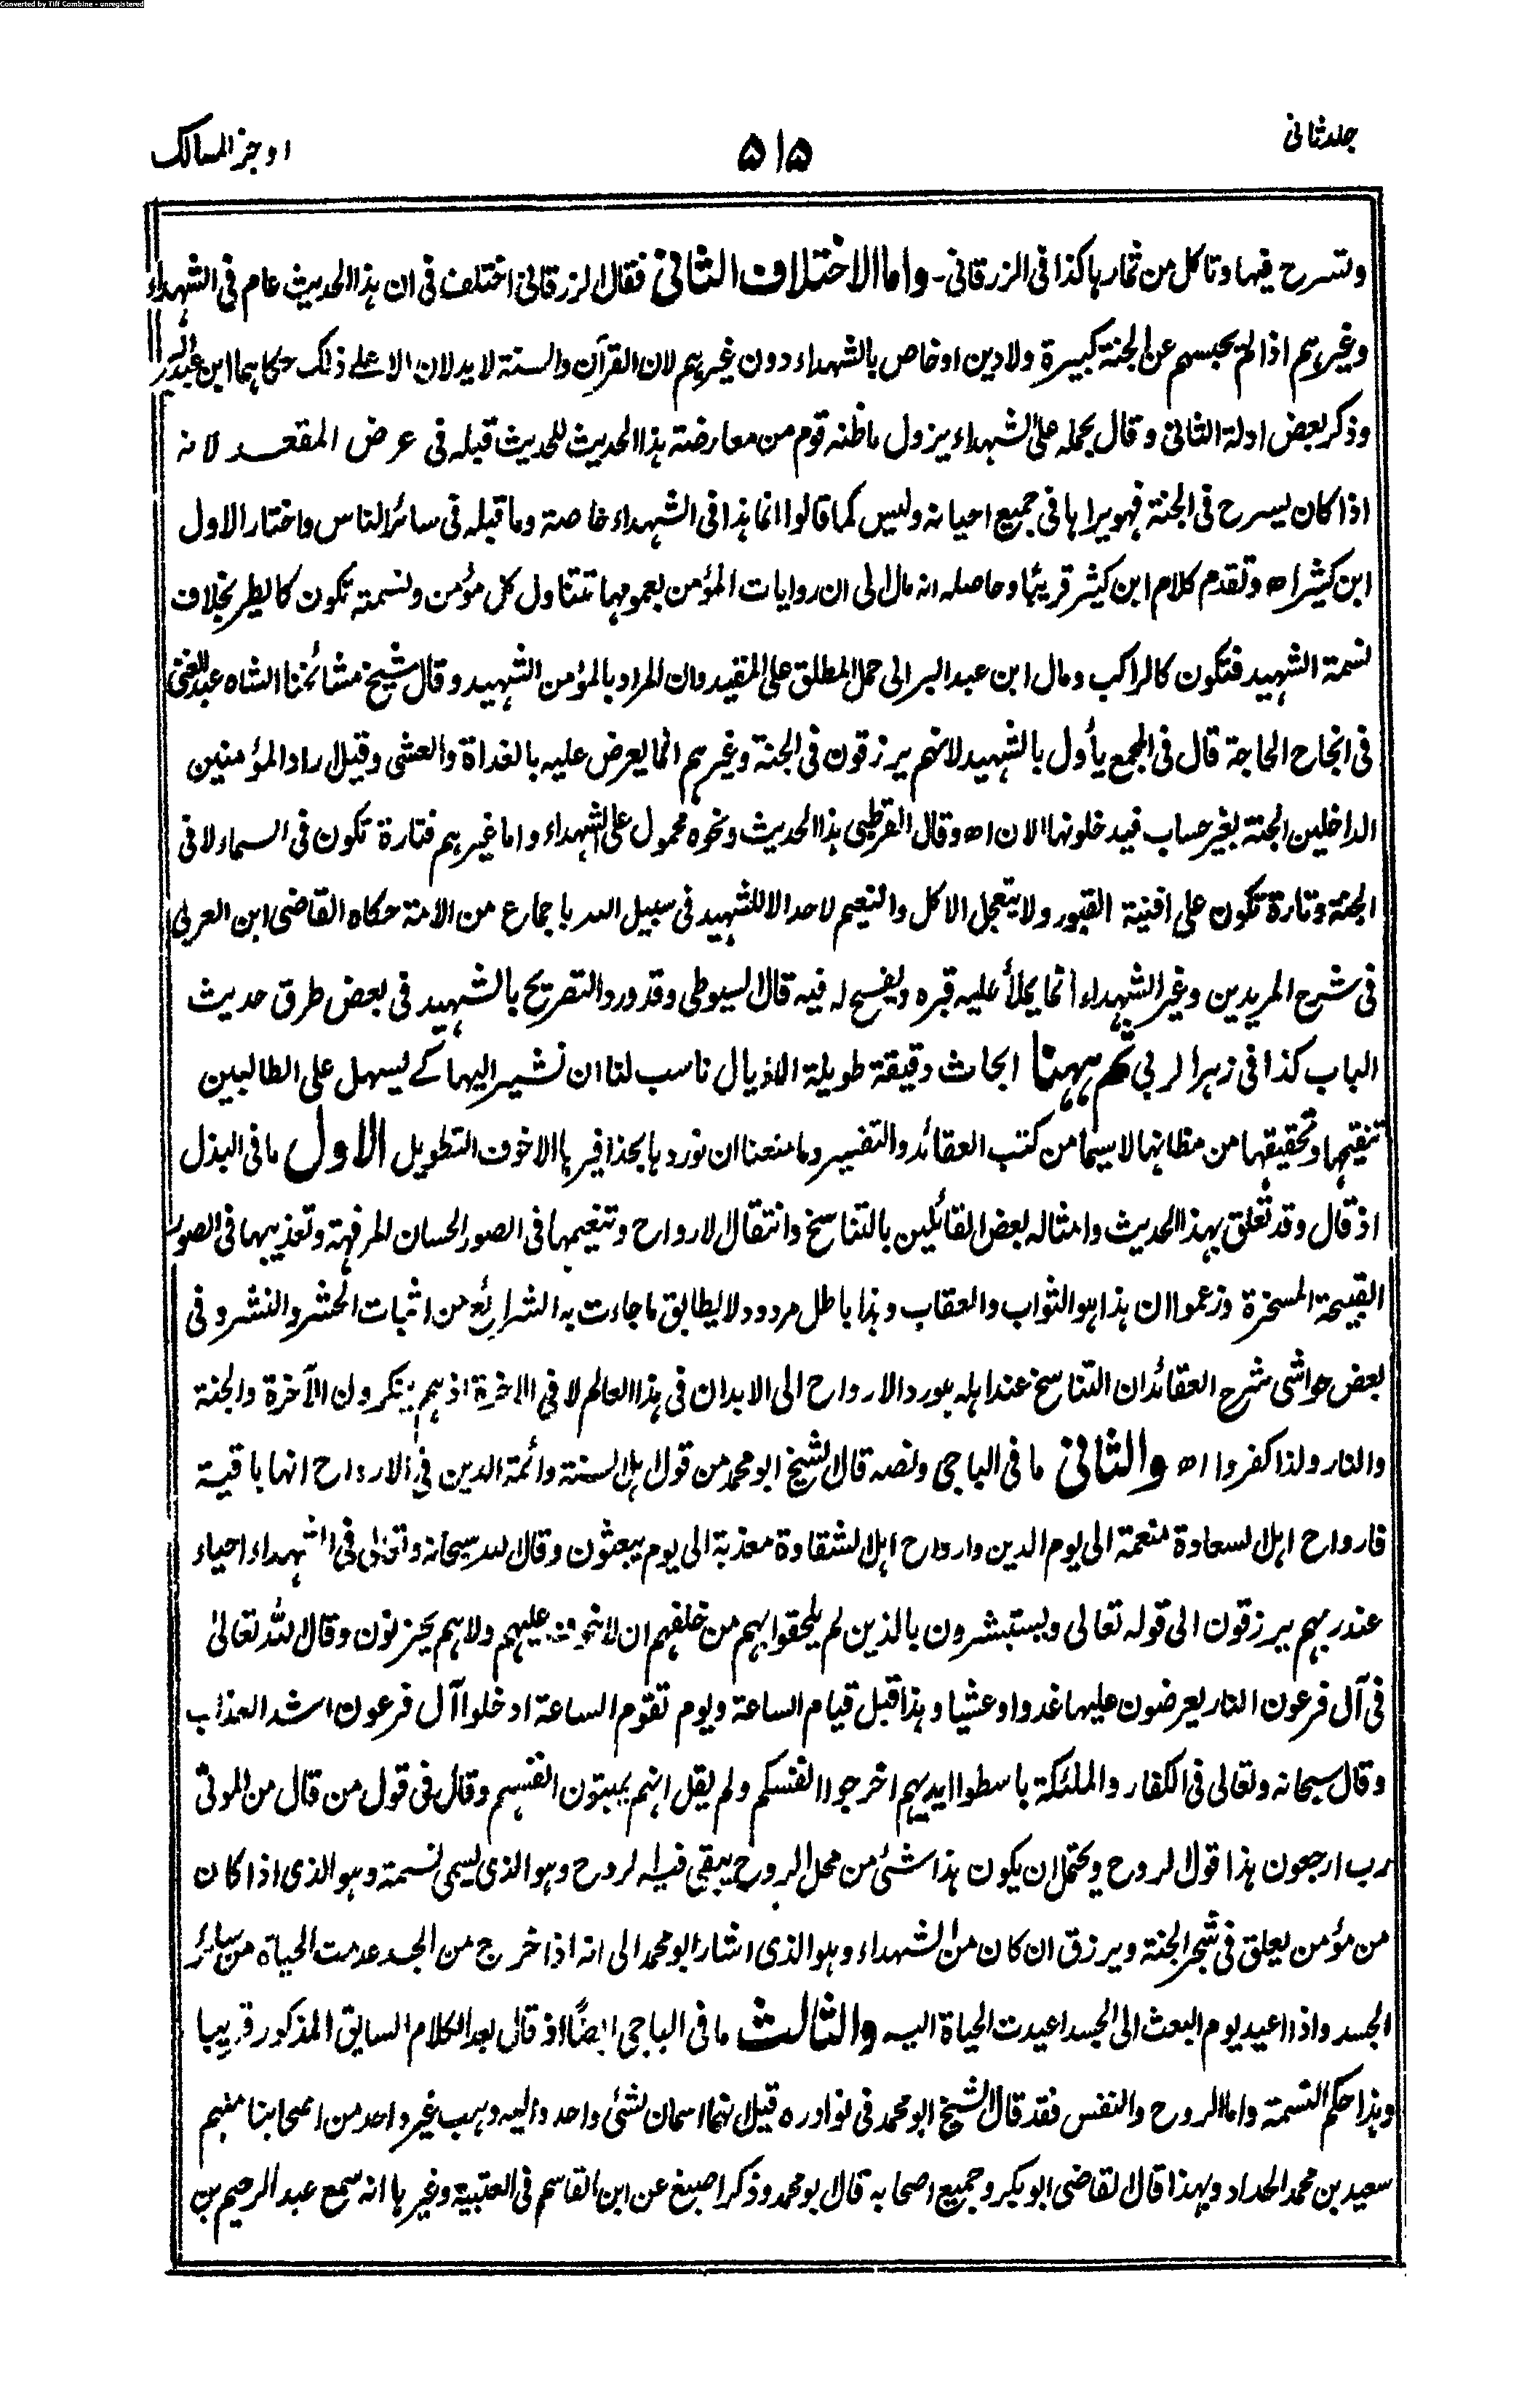 Converted by Tiff Combine - unregistered
جلد ثانی
۵۱۵
اوجز المسالک
وتسرح فیہا وتاکل من ثمارہا کذا فی الزرقانی۔ واما الاختلاف الثانی فقال الزرقانی اختلف فی ان ہذا الحدیث عام فی الشہداء
وغیرہم اذا لم یحبسہم عن الجنۃ کبیرۃ ولا دین او خاص بالشہداء دون غیرہم لان القرآن والسنۃ لا یدلان الا علی ذلک حکاہما ابن عبدالبر
وذکر بعض ادلۃ الثانی وقال بحملہ علی الشہداء یزول ما ظنہ قوم من معارضۃ ہذا الحدیث للحدیث قبلہ فی عرض المقعد لانہ
اذا کان یسرح فی الجنۃ فہو یراہا فی جمیع احیانہ ولیس کما قالوا انما ہذا فی الشہداء خاصۃ وما قبلہ فی سائر الناس واختار الاول
ابن کثیر اھ وتقدم کلام ابن کثیر قریبًا وحاصلہ انہ مال الی ان روایات المؤمن بعمومہا تتناول کل مؤمن ونسمتہ تکون کالطیر بخلاف
نسمۃ الشہید فتکون کالراکب ومال ابن عبدالبر الی حمل المطلق علی المقید وان المراد بالمؤمن الشہید وقال شیخ مشائخنا الشاہ عبدالغنی
فی انجاح الحاجۃ قال فی المجمع یأول بالشہید لانہم یرزقون فی الجنۃ وغیرہم انما یعرض علیہ بالغداۃ والعشی وقیل اراد المؤمنین
الداخلین الجنۃ بغیر حساب فیدخلونہا الان اھ وقال القرطبی ہذا الحدیث ونحوہ محمول علی الشہداء واما غیرہم فتارۃ تکون فی السماء لا فی
الجنۃ وتارۃ تکون علی افنیۃ القبور ولا یتعجل الاکل والنعیم لاحد الا للشہید فی سبیل اللہ باجماع من الأمۃ حکاہ القاضی ابن العربی
فی شرح المریدین وغیر الشہداء انما یملأ علیہ قبرہ ویفسح لہ فیہ قال السیوطی وقد ورد التصریح بالشہید فی بعض طرق حدیث
الباب کذا فی زہر الربی ثم ہہنا ابحاث دقیقۃ طویلۃ الاذیال ناسب لنا ان نشیر الیہا کے یسہل علی الطالبین
تنقیحہا وتحقیقہا من مظانہا لاسیما من کتب العقائد والتفسیر وما منعنا ان نوردہا بحذافیرہا الا خوف التطویل الاول ما فی البذل
اذ قال وقد تعلق بہذا الحدیث وامثالہ بعض القائلین بالتناسخ وانتقال الارواح وتنعیمہا فی الصور الحسان المرفہۃ وتعذیبہا فی الصور
القبیحۃ المسخرۃ وزعموا ان ہذا ہو الثواب والعقاب وہذا باطل مردود لا یطابق ما جاءت بہ الشرائع من اثبات الحشر والنشر وفی
بعض حواشی شرح العقائد ان التناسخ عند اہلہ ہو رد الارواح الی الابدان فی ہذا العالم لا فی الاخرۃ اذ ہم ینکرون الآخرۃ والجنۃ
والنار ولذا کفروا اھ والثانی ما فی الباجی ونصہ قال الشیخ ابو محمد من قول اہل السنۃ وأئمۃ الدین فی الارواح انہا باقیۃ
فارواح اہل السعادۃ منعمۃ الی یوم الدین وارواح اہل الشقاوۃ معذبۃ الی یوم یبعثون وقال اللہ سبحانہ وتعالی فی الشہداء احیاء
عند ربہم یرزقون الی قولہ تعالی ویستبشرون بالذین لم یلحقوا بہم من خلفہم ان لا خوف علیہم ولا ہم یحزنون وقال اللہ تعالیٰ
فی آل فرعون النار یعرضون علیہا غدوا وعشیا وہذا قبل قیام الساعۃ ویوم تقوم الساعۃ ادخلوا آل فرعون اشد العذاب
وقال سبحانہ وتعالی فی الکفار والملئکۃ باسطوا ایدیہم اخرجوا انفسکم ولم یقل انہم یمیتون انفسہم وقال فی قول من قال من الموتیٰ
رب ارجعون ہذا قول الروح ویحتمل ان یکون ہذا شئ من محل الروح یبقی فیہ الروح وہو الذی یسمی نسمۃ وہو الذی اذا کان
من مؤمن یعلق فی شجر الجنۃ ویرزق ان کان من الشہداء وہو الذی اشار ابو محمد الی انہ اذا خرج من الجسد عدمت الحیاۃ من سائر
الجسد واذا اعید یوم البعث الی الجسد اعیدت الحیاۃ الیہ والثالث ما فی الباجی ایضًا اذ قال بعد الکلام السابق المذکور قریبا
وہذا حکم النسمۃ واما الروح والنفس فقد قال الشیخ ابو محمد فی نوادرہ قیل انہما اسمان لشئ واحد والیہ ذہب غیر واحد من اصحابنا منہم
سعید بن محمد الحداد وبہذا قال القاضی ابو بکر وجمیع اصحابہ قال ابو محمد وذکر اصبغ عن ابن القاسم فی العتبیۃ وغیرہا انہ سمع عبد الرحیم بن